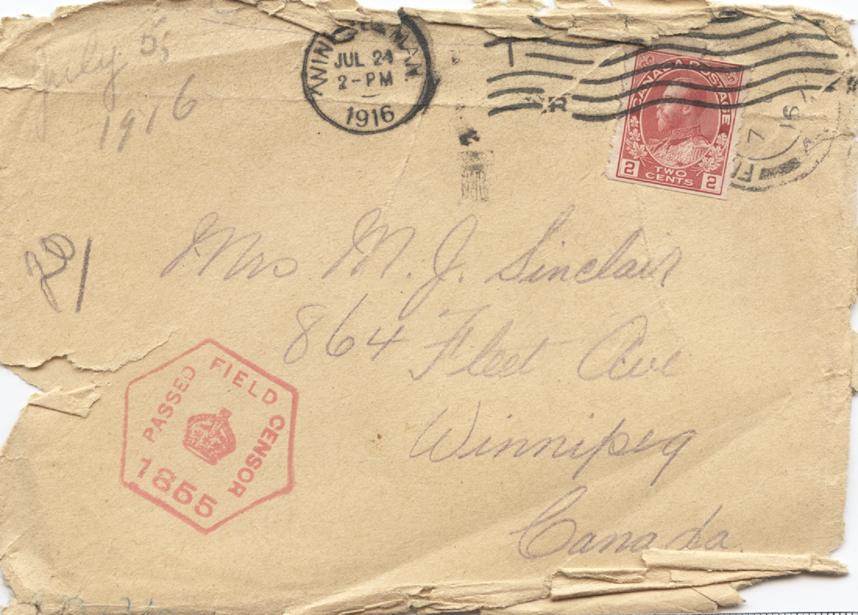 July 5,
1916
JUL 24
2-PM
1916
CANADA POSTAGE
2 TWO CENTS 2
Mrs M. J. Sinclair
864 Fleet Ave
Winnipeg
Canada
PASSED FIELD CENSOR
1855